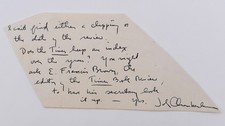 I can't find either a clipping or
the date of the review.
Does the Times keep an index
over the years? You might
ask E. Francis Brown, the
editor of the Times Book Review,
to have his secretary look
it up — Yrs. John Chamberlain